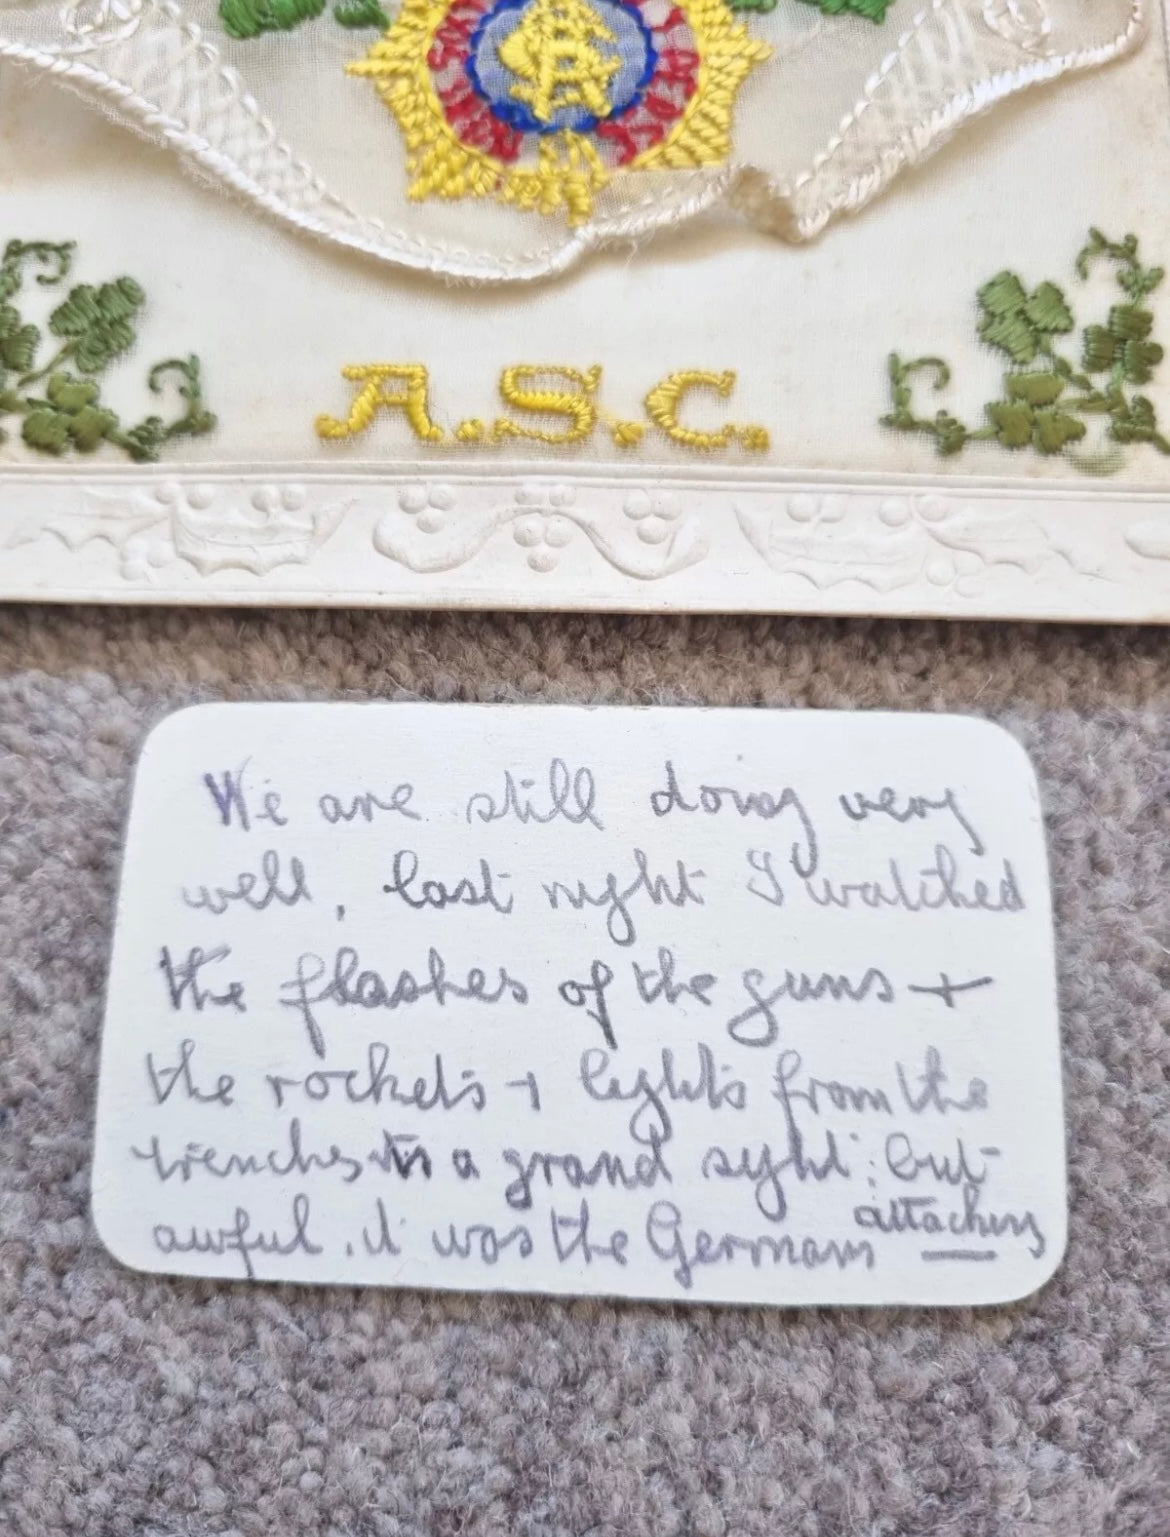 A.S.C.
We are still doing very
well, last night I watched
the flashes of the guns +
the rockets + lights from the
trenches a grand sight: but
awful, it was the Germans attacking